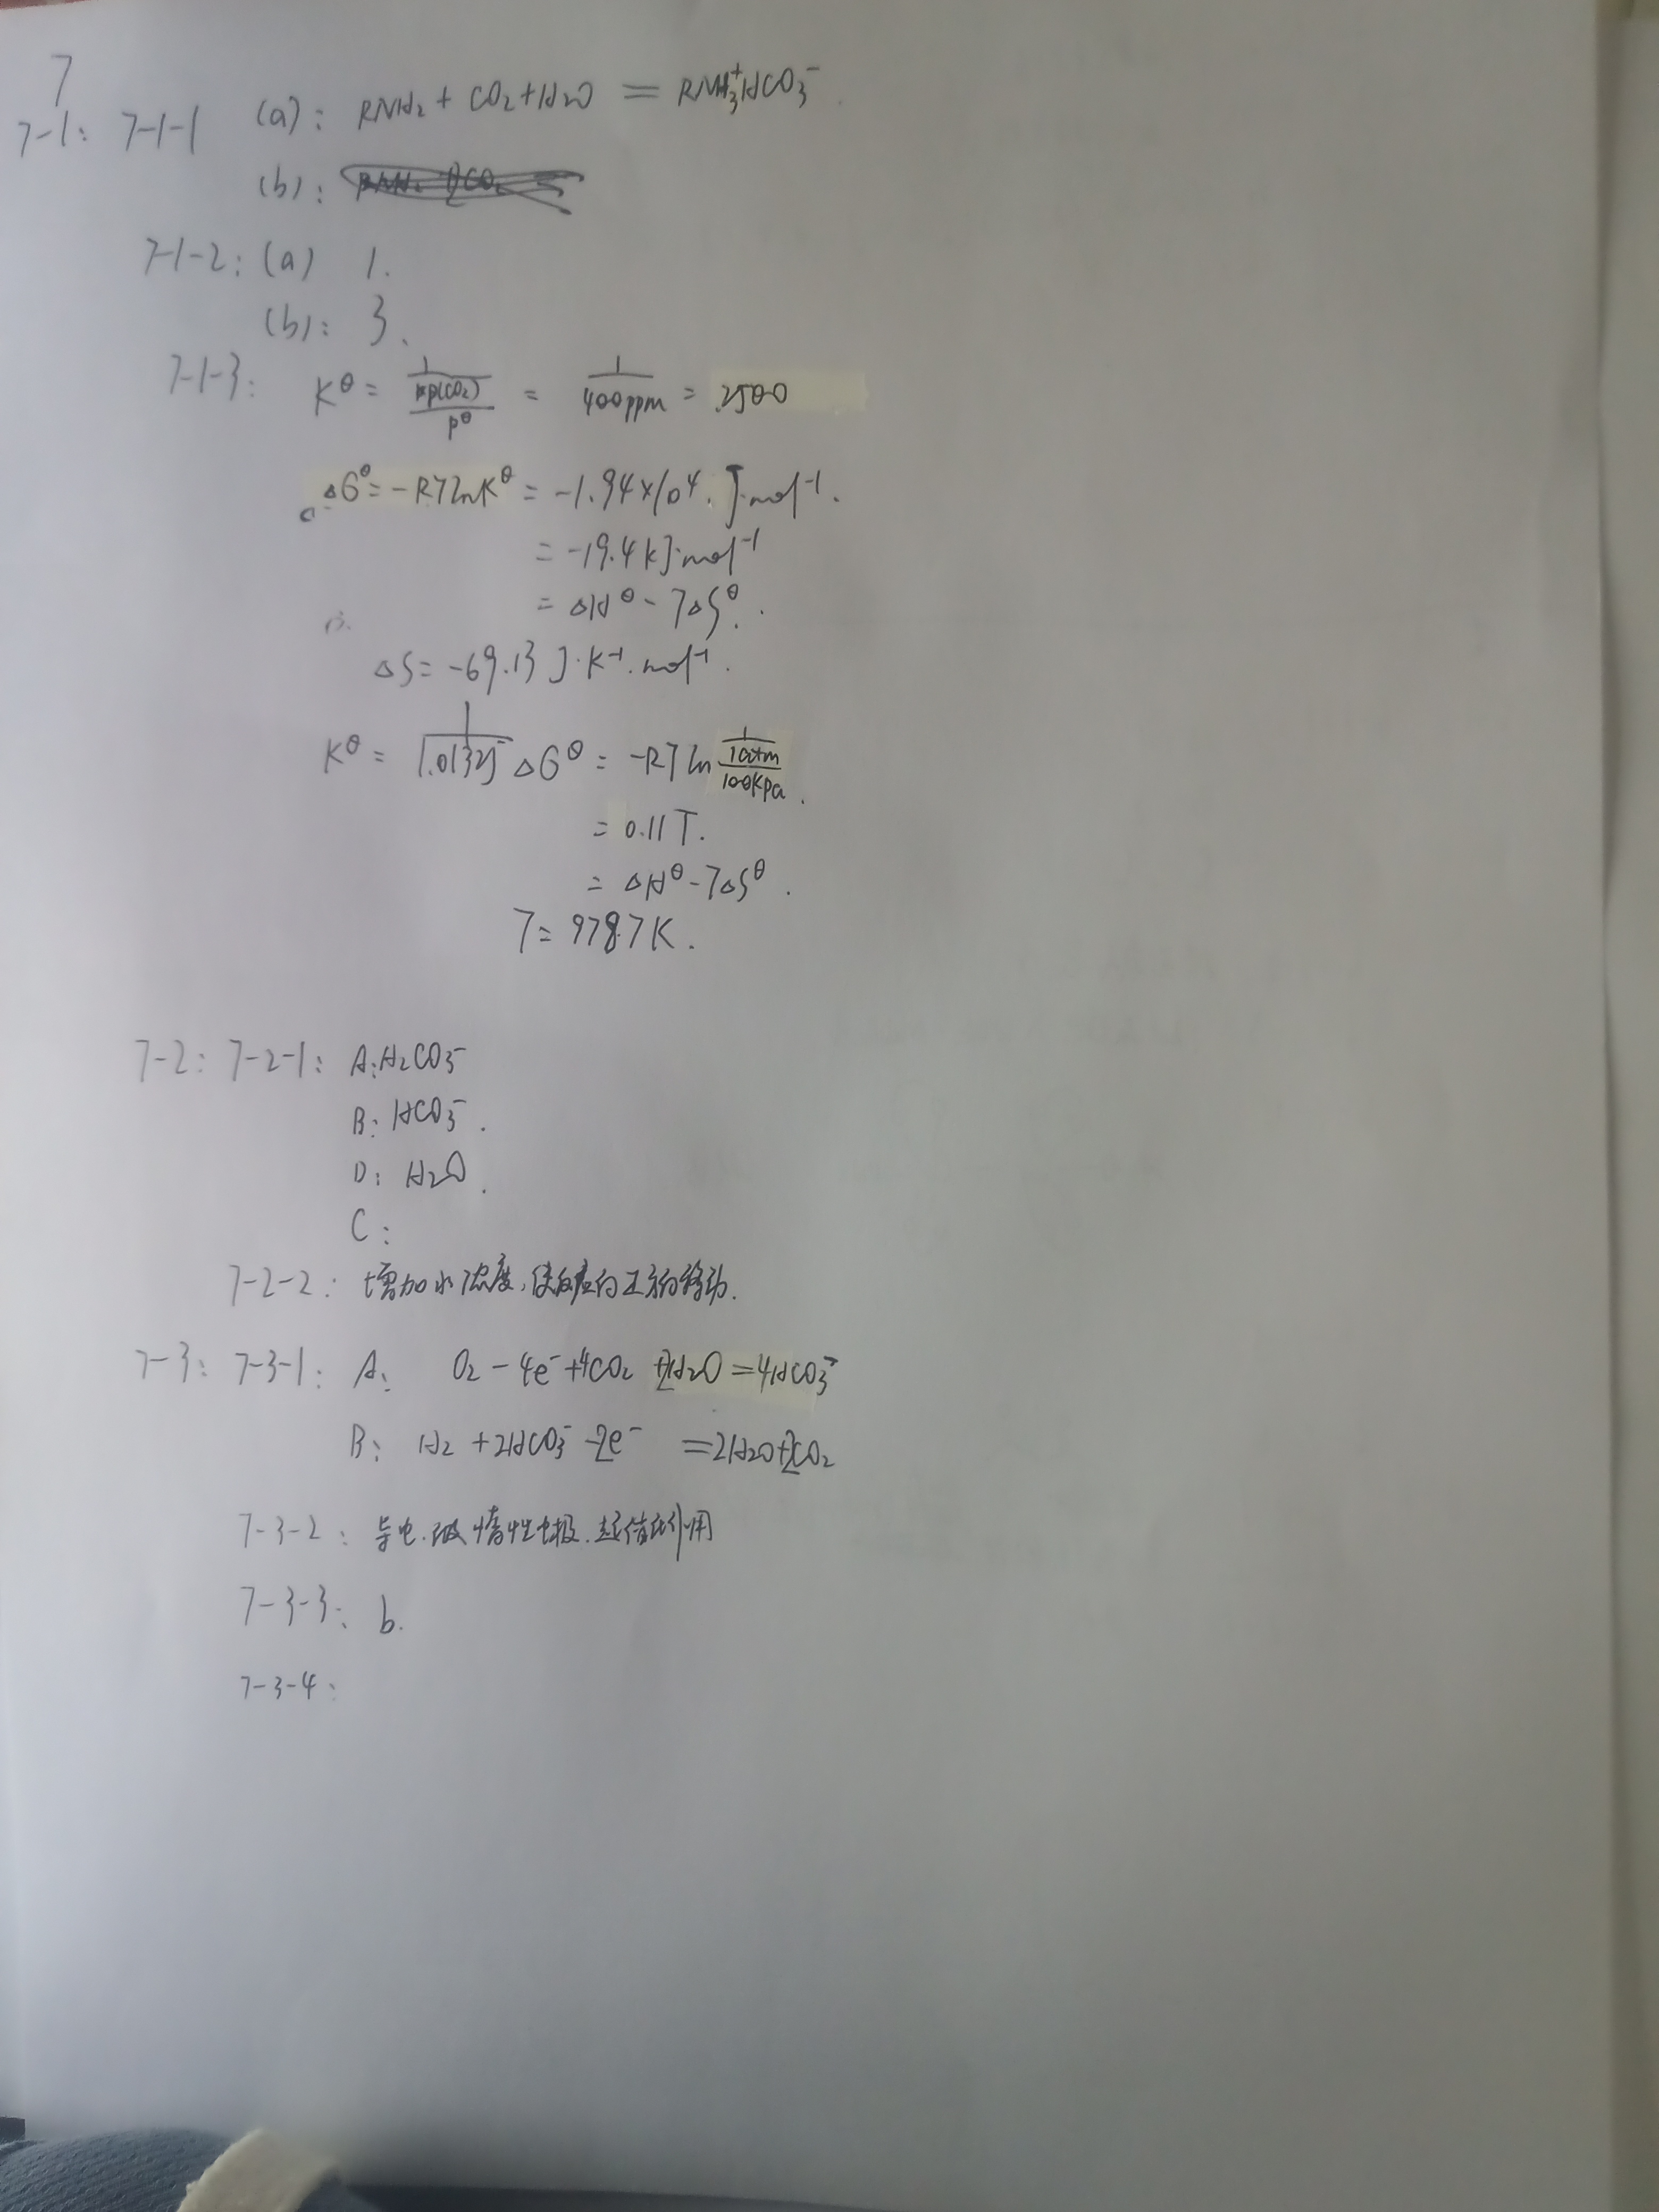 7
7-1: 7-1-1 (a): RNH₂ + CO₂ + H₂O = RNH₃⁺HCO₃⁻
(b):
7-1-2: (a) 1.
(b): 3.
7-1-3: K^θ = 1/(p(CO₂)/p^θ) = 1/400ppm = 2500
ΔG^θ = -RTlnK^θ = -1.94×10⁴ J·mol⁻¹.
= -19.4 kJ·mol⁻¹
= ΔH^θ - TΔS^θ.
ΔS = -69.13 J·K⁻¹·mol⁻¹.
K^θ = 1/1.01325 ΔG^θ = -RT ln 1/(1atm/100kPa).
= 0.11T.
= ΔH^θ - TΔS^θ.
T = 978.7K.
7-2: 7-2-1: A: H₂CO₃⁻
B: HCO₃⁻.
D: H₂O.
C:
7-2-2: 增加水浓度,使反应向正方向移动.
7-3: 7-3-1: A: O₂ - 4e⁻ + 4CO₂ + 2H₂O = 4HCO₃⁻
B: H₂ + 2HCO₃⁻ - 2e⁻ = 2H₂O + 2CO₂
7-3-2: 导电.做惰性电极.起催化作用
7-3-3: b.
7-3-4: